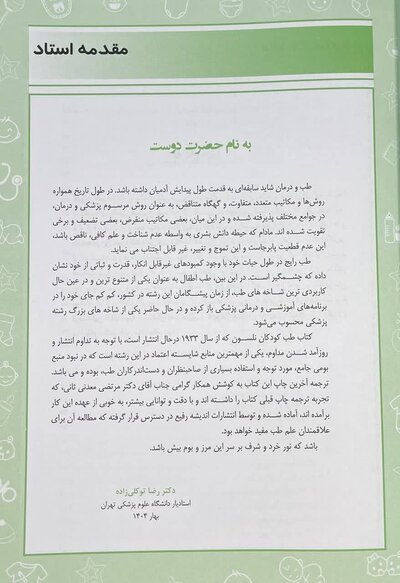 مقدمه استاد
به نام حضرت دوست
طب و درمان شاید سابقه‌ای به قدمت طول پیدایش آدمیان داشته باشد. در طول تاریخ همواره
روش‌ها و مکاتیب متعدد، متفاوت، و گهگاه متناقض، به عنوان روش مرسوم پزشکی و درمان،
در جوامع مختلف پذیرفته شده و در این میان، بعضی مکاتیب منقرض، بعضی تضعیف و برخی
تقویت شده اند. مادام که حیطه دانش بشری به واسطه عدم شناخت و علم کافی، ناقص باشد،
این عدم قطعیت پابرجاست و این تموج و تغییر، غیر قابل اجتناب می نماید.
طب رایج در طول حیات خود با وجود کمبودهای غیرقابل انکار، قدرت و ثباتی از خود نشان
داده که چشمگیر است. در این بین، طب اطفال به عنوان یکی از متنوع ترین و در عین حال
کاربردی ترین شاخه های طب، از زمان پیشگامان این رشته در کشور، کم کم جای خود را در
برنامه‌های آموزشی و درمانی پزشکی باز کرده و در حال حاضر یکی از شاخه های بزرگ رشته
پزشکی محسوب می‌شود.
کتاب طب کودکان نلسون که از سال ۱۹۳۳ درحال انتشار است، با توجه به تداوم انتشار و
روزآمد شدن مداوم، یکی از مهمترین منابع شایسته اعتماد در این رشته است که در نبود منبع
بومی جامع، مورد توجه و استفاده بسیاری از صاحبنظران و دست‌اندرکاران طب، بوده و می باشد.
ترجمه آخرین چاپ این کتاب به کوشش همکار گرامی جناب آقای دکتر مرتضی معدنی ثانی، که
تجربه ترجمه چاپ قبلی کتاب را داشته اند و با دقت و توانایی بیشتر، به خوبی از عهده این کار
برآمده اند، آماده شده و توسط انتشارات اندیشه رفیع در دسترس قرار گرفته که مطالعه آن برای
علاقمندان علم طب مفید خواهد بود.
باشد که نور خرد و شرف بر سر این مرز و بوم بیش باشد.
دکتر رضا توکلی‌زاده
استادیار دانشگاه علوم پزشکی تهران
بهار ۱۴۰۴